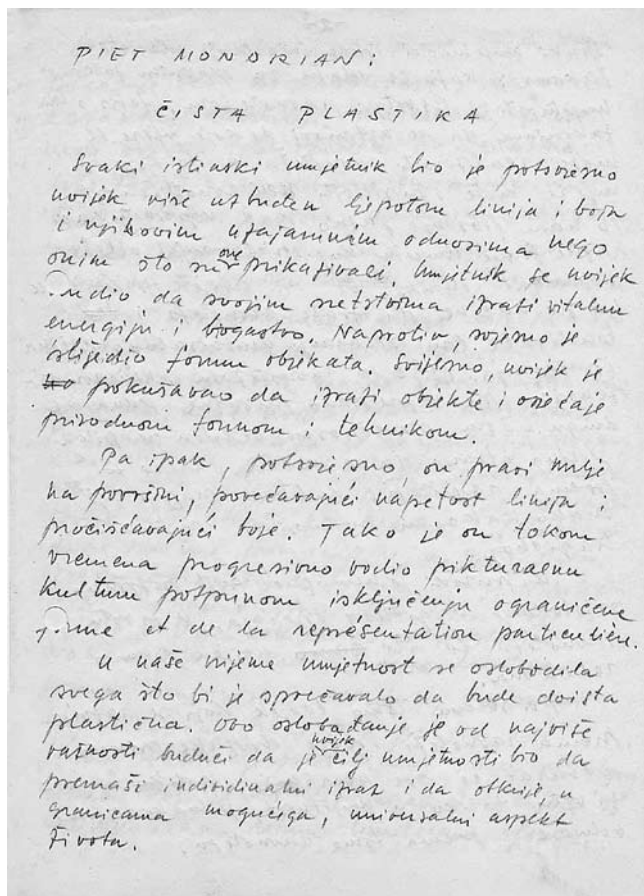 PIET MONDRIAN:
ČISTA PLASTIKA
Svaki istinski umjetnik bio je potsvjesno
uvijek više uzbuđen ljepotom linija i boja
i njihovim uzajamnim odnosima nego
onim što su one prikazivali. Umjetnik je uvijek
da svojim sretstvima izrazi vitalnu
energiju i bogastvo. Naprotiv, svjesno je
slijedio formu objekata. Svijesno, uvijek je
pokušavao da izrazi objekte i osjećaje
prirodnom formom i tehnikom.
Pa ipak, potsvjesno on pravi
na površini, povećavajući napetost linija i
pročišćavajući boje. Tako je on tokom
vremena progresivno vodio pikturalnu
kulturu potpunom isključenju ograničene
forme et de la représentation particulière.
U naše vrijeme umjetnost se oslobodila
svega što bi je sprečavalo da bude doista
plastična. Ovo oslobađanje je od najviše
važnosti budući da je uvijek cilj umjetnosti bio da
premaši individualni izraz i da otkrije, u
granicama mogućega, univerzalni aspekt
života.